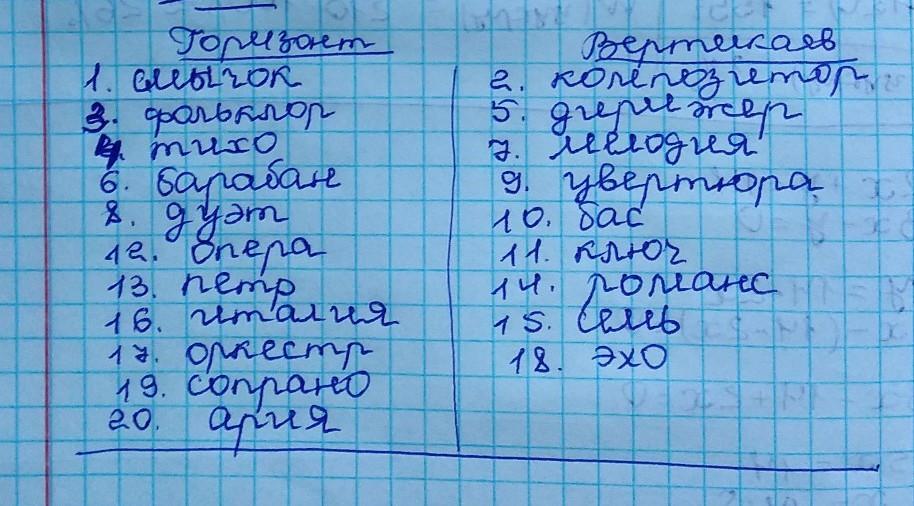 Горизонт
1. смычок
3. фольклор
4. тихо
6. барабан
8. дуэт
12. опера
13. петр
16. италия
17. оркестр
19. сопрано
20. ария
Вертикаль
2. композитор
5. дирижер
7. мелодия
9. увертюра
10. бас
11. ключ
14. романс
15. семь
18. эхо